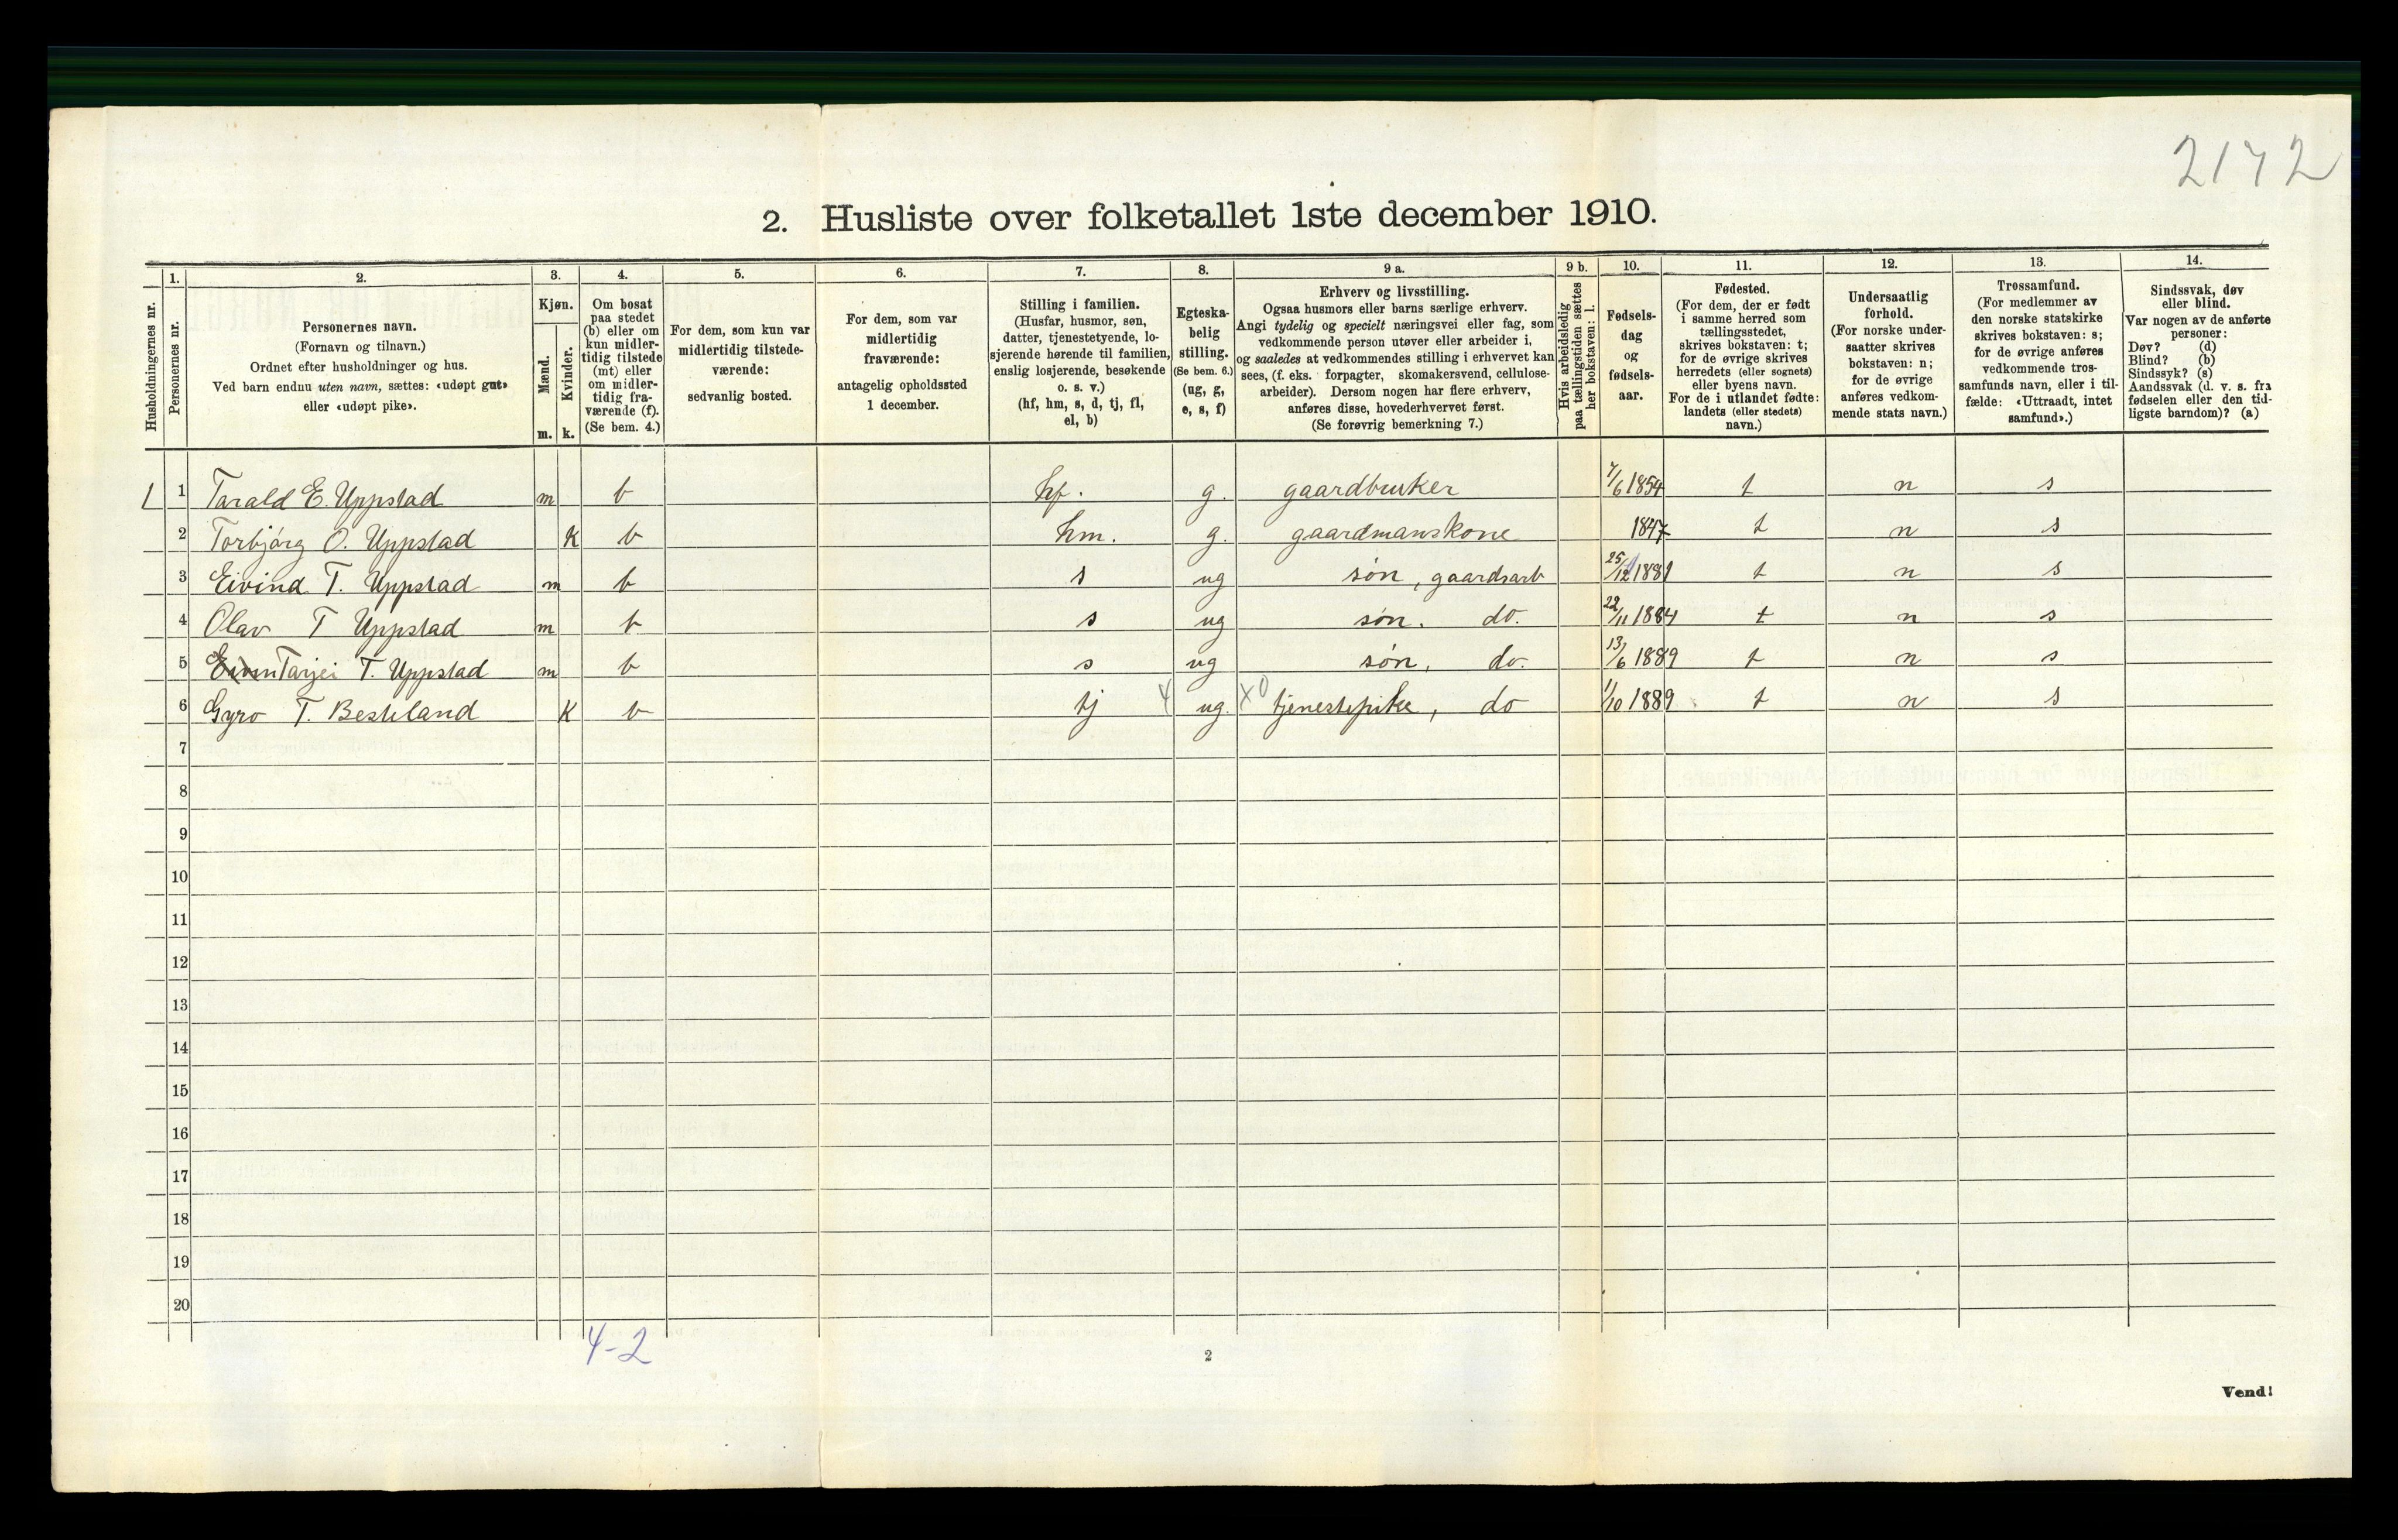 2172
2. Husliste over folketallet 1ste december 1910.
Husholdningernes nr.
1.
Personernes nr.
2.
Personernes navn.
(Fornavn og tilnavn.)
Ordnet efter husholdninger og hus.
Ved barn endnu uten navn, sættes: «udøpt gut»
eller «udøpt pike».
3.
Kjøn.
Mænd.
m.
Kvinder.
k.
4.
Om bosat
paa stedet
(b) eller om
kun midler-
tidig tilstede
(mt) eller
om midler-
tidig fra-
værende (f).
(Se bem. 4.)
5.
For dem, som kun var
midlertidig tilstede-
værende:
sedvanlig bosted.
6.
For dem, som var
midlertidig
fraværende:
antagelig opholdssted
1 december.
7.
Stilling i familien.
(Husfar, husmor, søn,
datter, tjenestetyende, lo-
sjerende hørende til familien,
enslig losjerende, besøkende
o. s. v.)
(hf, hm, s, d, tj, fl,
el, b)
8.
Egteska-
belig
stilling.
(Se bem. 6.)
(ug, g,
e, s, f)
9 a.
Erhverv og livsstilling.
Ogsaa husmors eller barns særlige erhverv.
Angi tydelig og specielt næringsvei eller fag, som
vedkommende person utøver eller arbeider i,
og saaledes at vedkommendes stilling i erhvervet kan
sees, (f. eks. forpagter, skomakersvend, cellulose-
arbeider). Dersom nogen har flere erhverv,
anføres disse, hovederhvervet først.
(Se forøvrig bemerkning 7.)
9 b.
Hvis arbeidsledig
paa tællingstiden sættes
her bokstaven: l.
10.
Fødsels-
dag
og
fødsels-
aar.
11.
Fødested.
(For dem, der er født
i samme herred som
tællingsstedet,
skrives bokstaven: t;
for de øvrige skrives
herredets (eller sognets)
eller byens navn.
For de i utlandet fødte:
landets (eller stedets)
navn.)
12.
Undersaatlig
forhold.
(For norske under-
saatter skrives
bokstaven: n;
for de øvrige
anføres vedkom-
mende stats navn.)
13.
Trossamfund.
(For medlemmer av
den norske statskirke
skrives bokstaven: s;
for de øvrige anføres
vedkommende tros-
samfunds navn, eller i til-
fælde: «Uttraadt, intet
samfund».)
14.
Sindssvak, døv
eller blind.
Var nogen av de anførte
personer:
Døv? (d)
Blind? (b)
Sindssyk? (s)
Aandssvak (d. v. s. fra
fødselen eller den tid-
ligste barndom)? (a)
1 1 Tarald E. Uppstad m b hf. g. gaardbruker 7/6 1854 t n s
2 Torbjørg O. Uppstad K b hm. g. gaardmanskone 1847 t n s
3 Eivind T. Uppstad m b s ug søn, gaardsarb 25/12 1881 t n s
4 Olav T Uppstad m b s ug søn. do. 22/11 1884 t n s
5 Tarjei T. Uppstad m b s ug søn, do. 13/6 1889 t n s
6 Gyro T. Besteland K b tj 4 ug. x0 tjenestepike, do 1/10 1889 t n s
7
8
9
10
11
12
13
14
15
16
17
18
19
20
4-2
2
Vend!